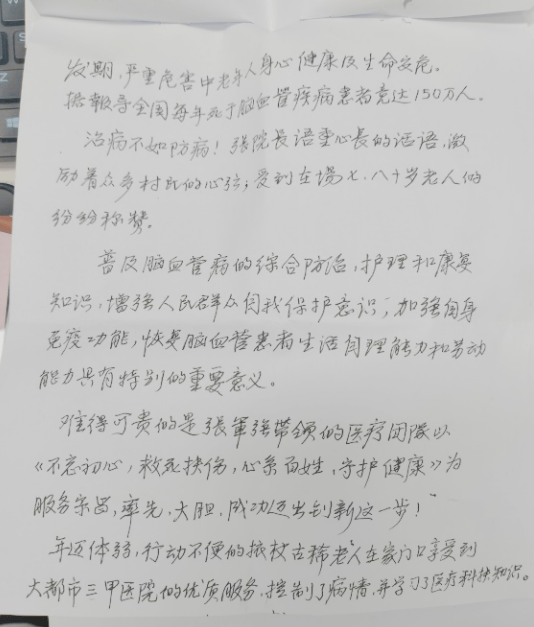 发期,严重危害中老年人身心健康及生命安危。
据報导全国每年死于脑血管疾病患者竟达150万人。
治病不如防病!張院長语重心長的话语,激
励着众多村民的心弦;受到在場七、八十岁老人的
纷纷称赞。
普及脑血管病的综合防治,护理和康复
知识,增强人民群众自我保护意识;加强自身
免疫功能,恢复脑血管患者生活自理能力和劳动
能力具有特别的重要意义。
难得可贵的是張軍强带领的医疗团隊以
《不忘初心,救死扶伤,心系百姓,守护健康》为
服务宗旨,率先、大胆、成功迈出创新这一步!
年迈体弱,行动不便的拄杖古稀老人在家门口享受到
大都市三甲医院的优质服务,控制了病情,并学习了医疗科技知识。